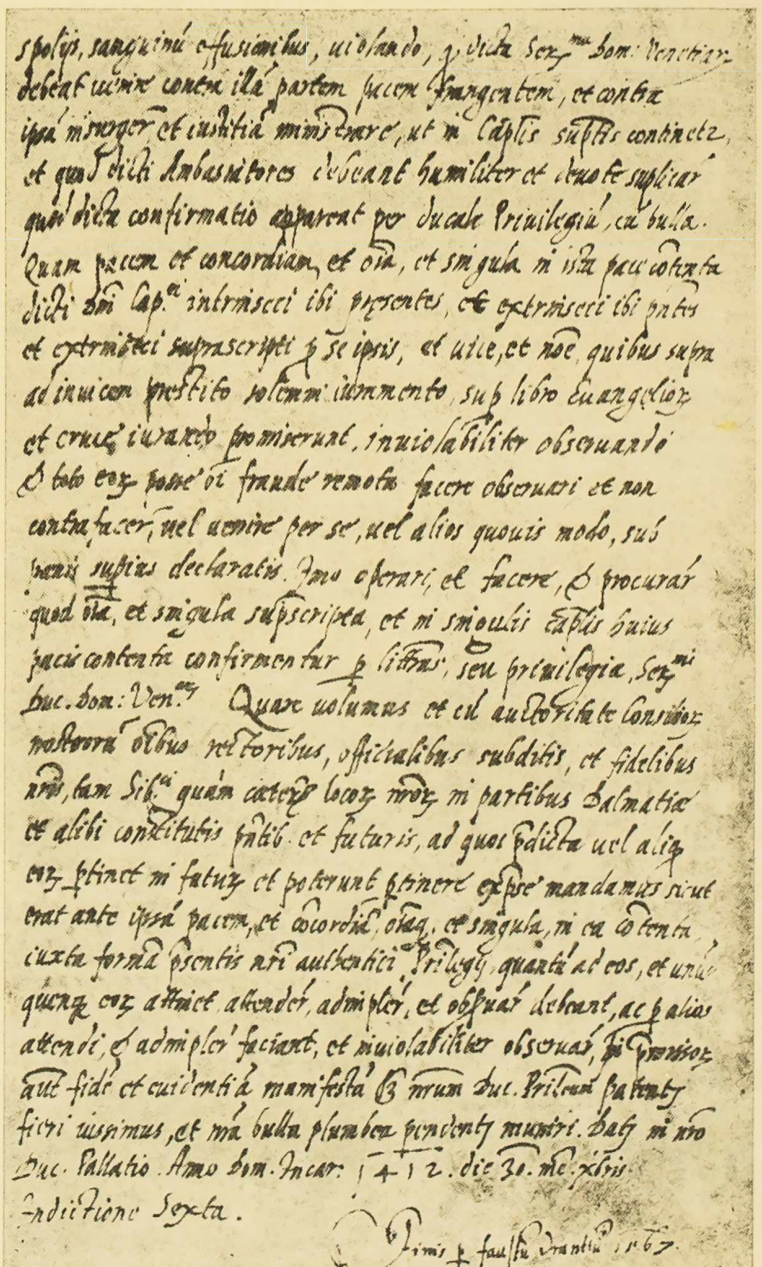 spolijs, sanguinū effusionibus, uiolando, q̄ dicta Ser.ma Dom: Venetiar
debeat uenire contra illā partem pacem frangentem, et contra
ipsā insurger̄ et iustitiā ministrare, ut in Cap̄lis sup̄tis continetꝛ,
et quod dicti Ambasiatores debeant humiliter et deuote suplicar̄
quod dicta confirmatio appareat per ducale Priuilegiū, cū bulla.
Quam pacem et concordiam, et oīa, et singula in ista pace cōtenta
dicti Dn̄i Cap.ei intrinseci ibi pręsentes, et extrinseci ibi pn̄tes
et extrinseci suprascripti p̄ se ipsis, et uice, et noīe quibus supra
ad inuicem prestito solemni iuramento, sup̄ libro Euangelioꝝ
et cruce iurando promiserunt, inuiolabiliter obseruando
& toto eoꝝ posse oī fraude remota facere obseruari et non
contrafacer̄, uel uenire per se, uel alios quouis modo, sub
penis sup̄ius declaratis. Imo operari, et facere, & procurar̄
quod oīa, et singula sup̄scripta, et in singulis cap̄lis huius
pacis contenta confirmentur p̄ litt̄ras, seu priuilegia, Ser.mi
Duc. Dom: Ven.
Quare uolumus et cū auctoritate Consilioꝝ
nostrorū oībus rectoribus, officialibus subditis, et fidelibus
nr̄is, tam Sib.ei quàm cæteroꝝ locoꝝ nr̄oꝝ in partibus Dalmatiæ
et alibi constitutis pn̄tib. et futuris, ad quos p̄dicta uel aliq̄
eoꝝ p̄tinet in futuꝝ et poterunt p̄tinere expr̄se mandamus sicut
erat ante ipsā pacem, et cōcordiā, oīaq. et singula, in ea cōtenta
iuxta formā p̄sentis nr̄i authentici Priīlegij, quantū ad eos, et unū
quenq; eoꝝ attinet attender̄, adimpler̄, et obseruar̄ debeant, ac p̄ alios
attendi, & adimpler̄ faciant, et inuiolabiliter obseruar̄, In p̄missoꝝ
aūt fidē et euidentiā manifestā nr̄um Duc. Priīleum Patens
fieri iussimus, et nr̄a bulla plumbea pendenti muniri. Datꝫ in nr̄o
Duc. Pallatio. Anno Dom. Incar. 1412. die 30. mē. xbris.
Indictione Sexta.
Finis p̄ faustū Vrantiū 1567.